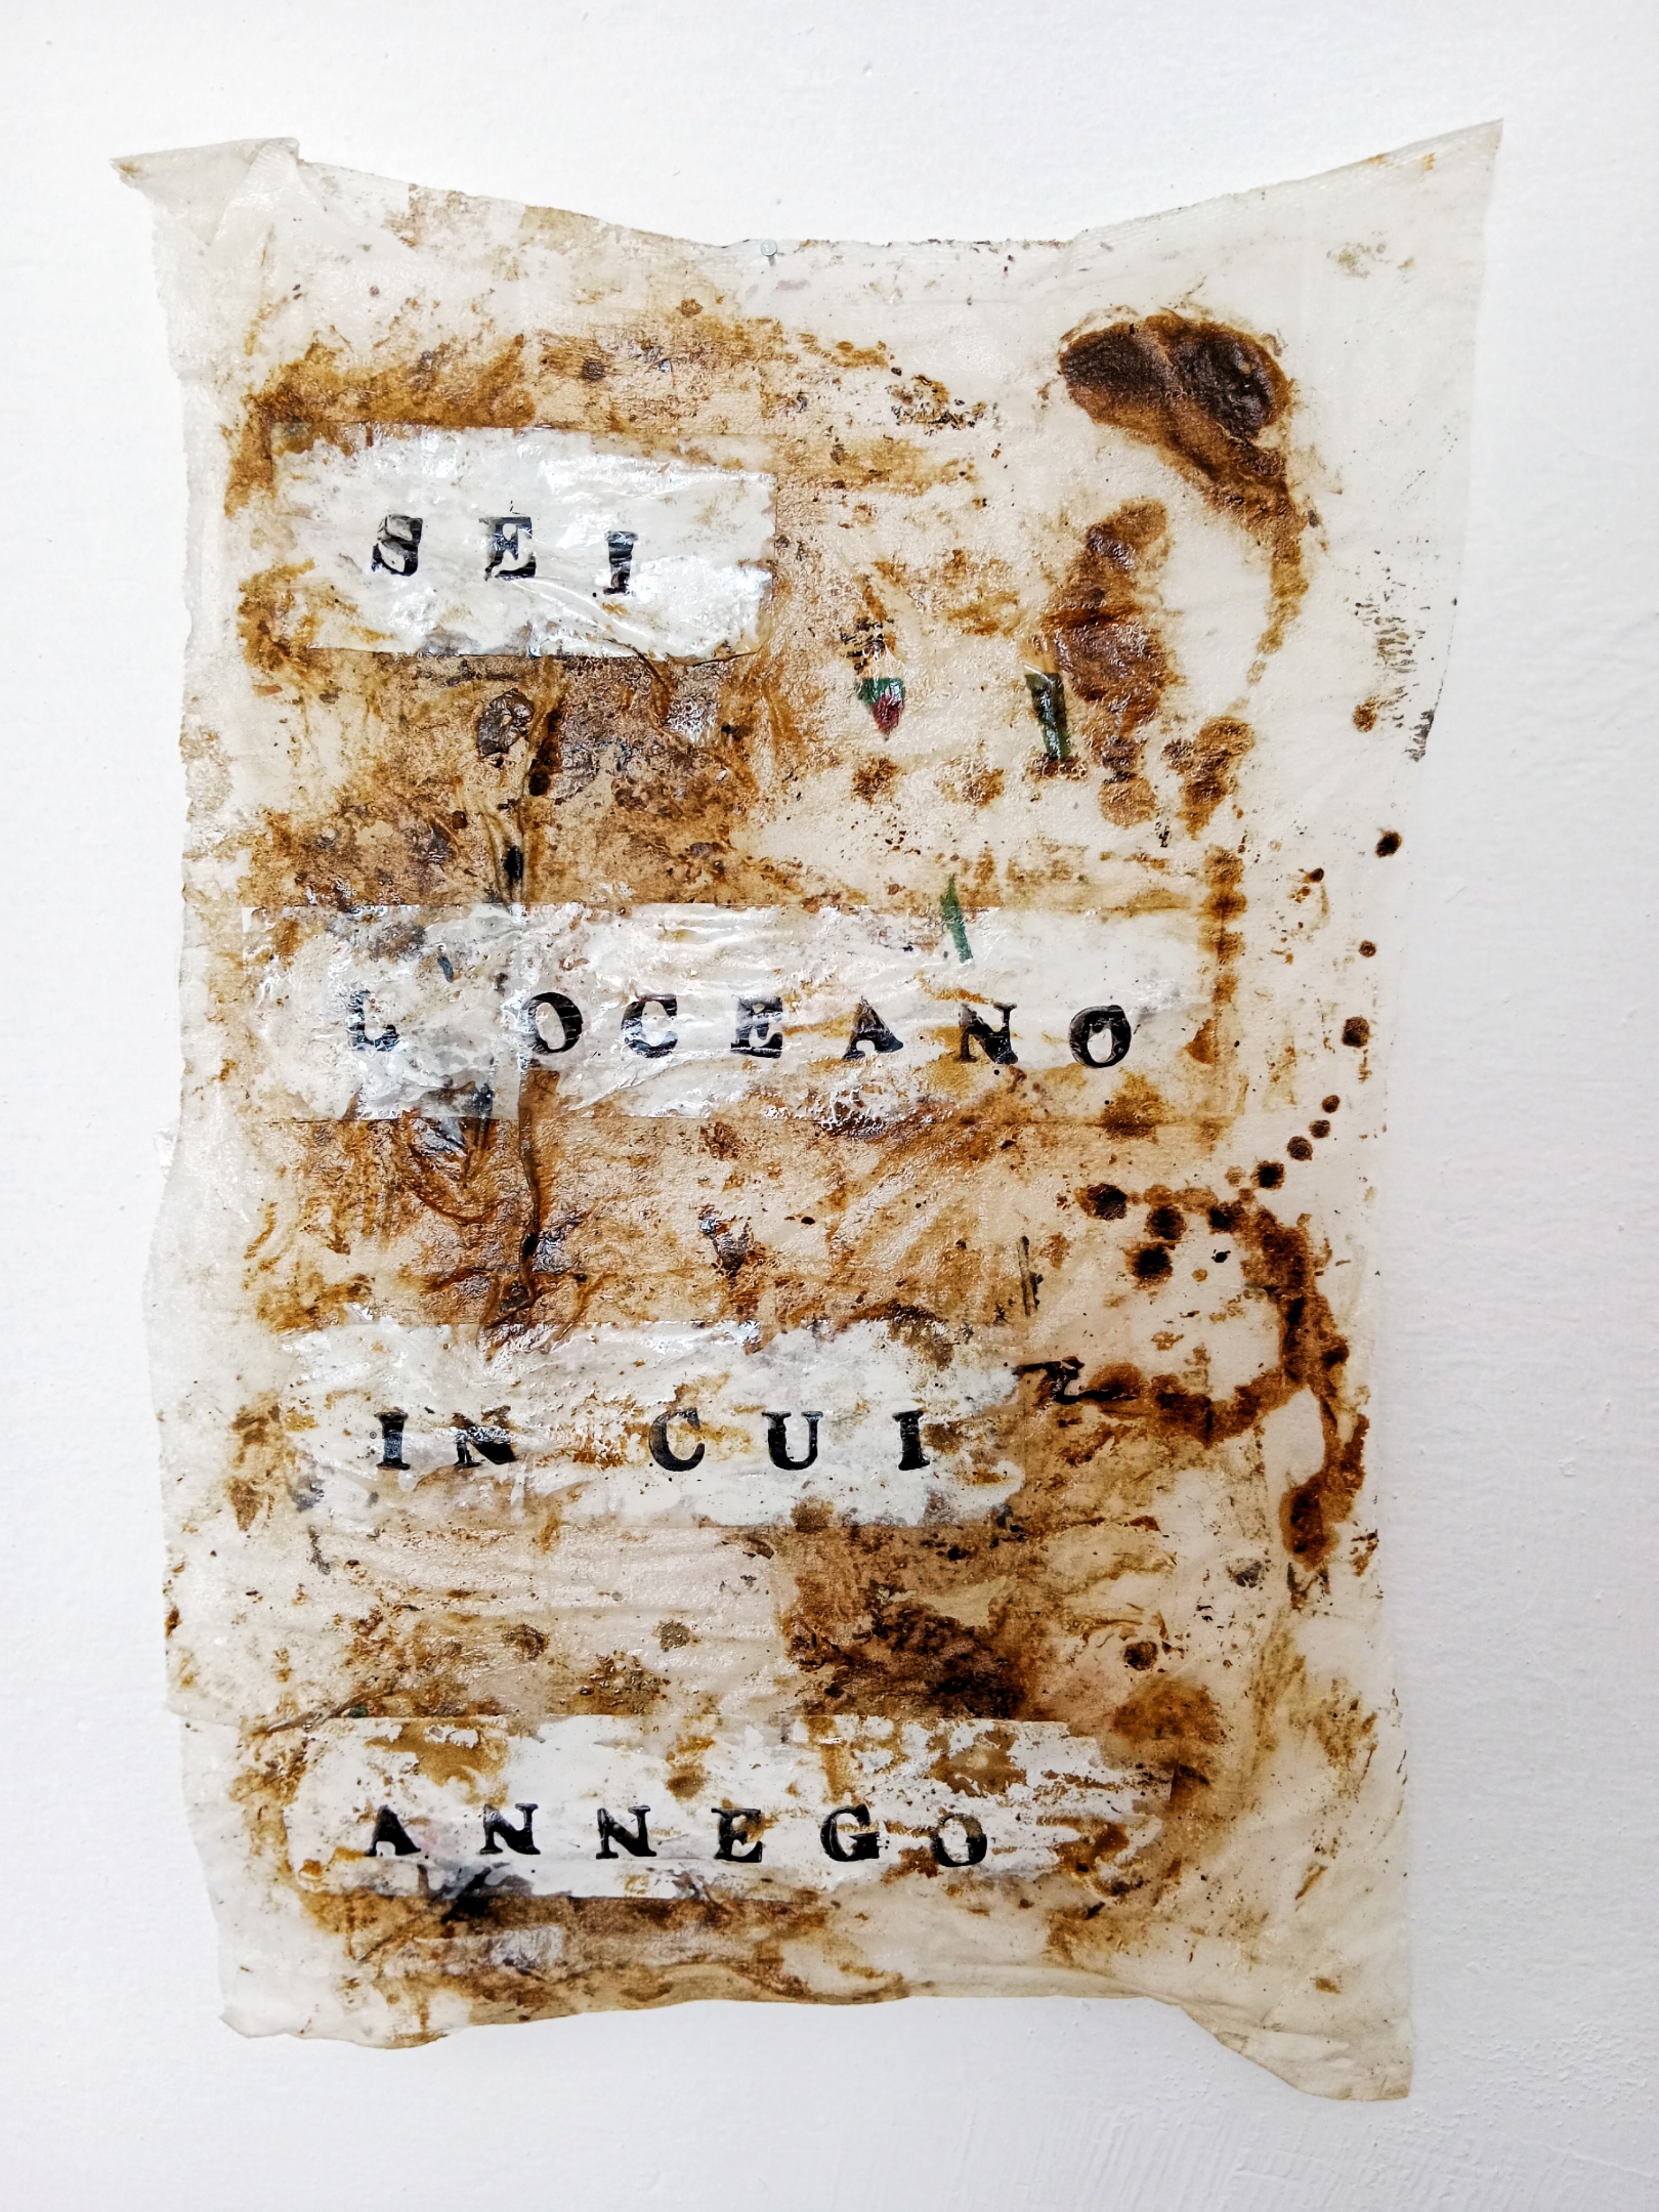 SEI
L OCEANO
IN CUI
ANNEGO